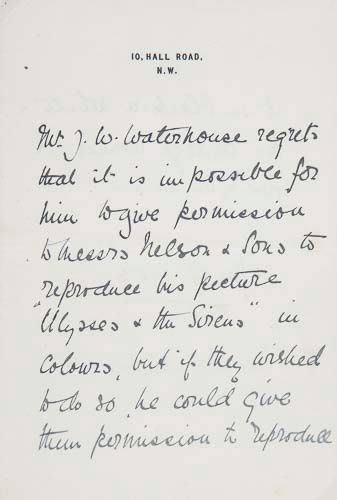 10, HALL ROAD,
N.W.
Mr. J. W. Waterhouse regrets
that it is impossible for
him to give permission
to Messrs Nelson & Sons to
reproduce his picture
"Ulysses & the Sirens" in
colours, but if they wished
to do so, he could give
them permission to reproduce